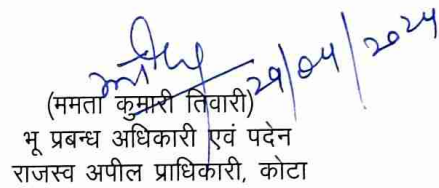 29/04/2024
(ममता कुमारी तिवारी)
भू प्रबन्ध अधिकारी एवं पदेन
राजस्व अपील प्राधिकारी, कोटा